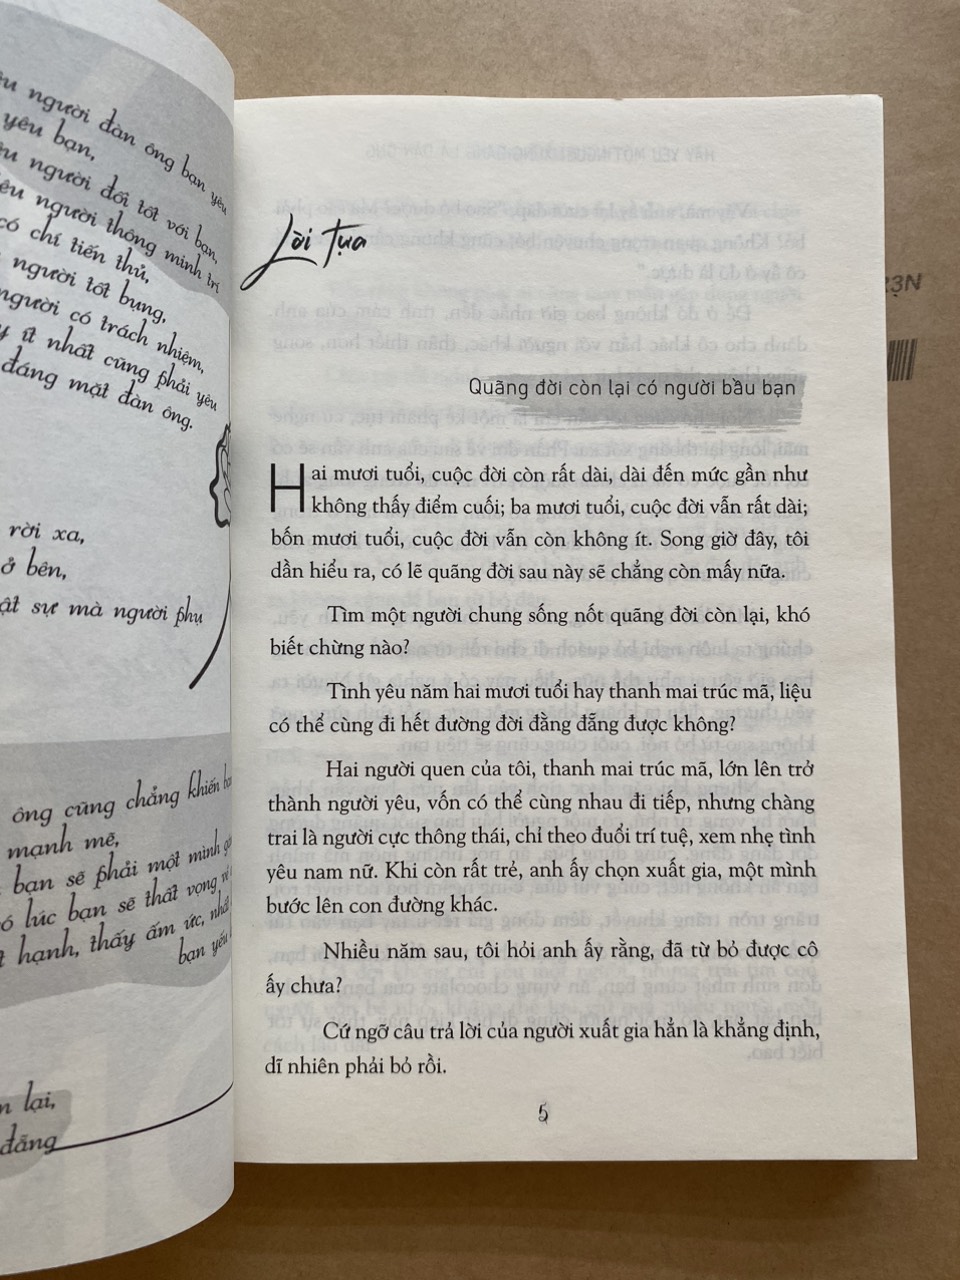 người đàn ông bạn yêu
yêu bạn,
người đối tốt với bạn,
người thông minh trí
có chí tiến thủ,
người tốt bụng,
người có trách nhiệm,
ít nhất cũng phải yêu
đáng mặt đàn ông.
rời xa,
ở bên,
sự mà người phụ
ông cũng chẳng khiến
mạnh mẽ,
bạn sẽ phải một mình
lúc bạn sẽ thất vọng về
hạnh, thấy ấm ức,
bạn yếu
lại,
đẵng
Lời tựa
Quãng đời còn lại có người bầu bạn
Hai mươi tuổi, cuộc đời còn rất dài, dài đến mức gần như
không thấy điểm cuối; ba mươi tuổi, cuộc đời vẫn rất dài;
bốn mươi tuổi, cuộc đời vẫn còn không ít. Song giờ đây, tôi
dần hiểu ra, có lẽ quãng đời sau này sẽ chẳng còn mấy nữa.
Tìm một người chung sống nốt quãng đời còn lại, khó
biết chừng nào?
Tình yêu năm hai mươi tuổi hay thanh mai trúc mã, liệu
có thể cùng đi hết đường đời đằng đẵng được không?
Hai người quen của tôi, thanh mai trúc mã, lớn lên trở
thành người yêu, vốn có thể cùng nhau đi tiếp, nhưng chàng
trai là người cực thông thái, chỉ theo đuổi trí tuệ, xem nhẹ tình
yêu nam nữ. Khi còn rất trẻ, anh ấy chọn xuất gia, một mình
bước lên con đường khác.
Nhiều năm sau, tôi hỏi anh ấy rằng, đã từ bỏ được cô
ấy chưa?
Cứ ngỡ câu trả lời của người xuất gia hẳn là khẳng định,
dĩ nhiên phải bỏ rồi.
5